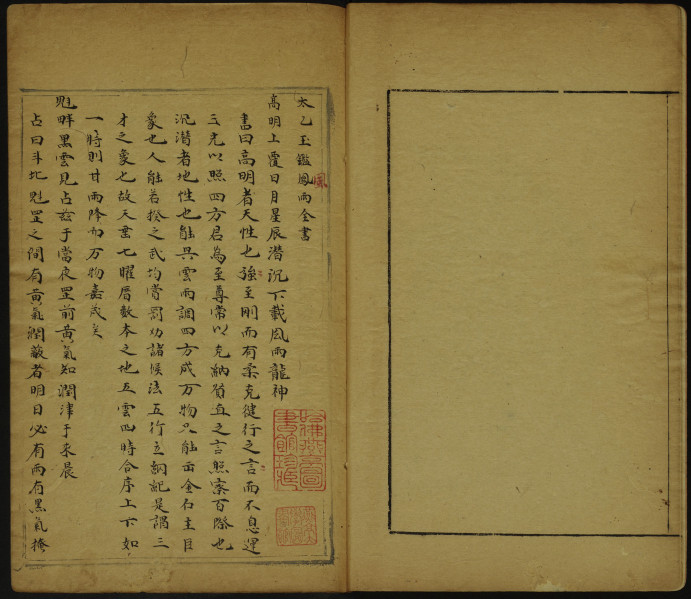 太乙玉鑑風雨全書
風
高明上覆日月星辰潛沉下載風雨龍神
書曰高明者天性也強至剛而有柔克健行之言而不息運
三光以照四方君為至尊常以克納質直之言照察百際也
沉潛者地性也能興雲雨調四方成万物又能出金石主臣
象也人能若揆之武均當罰功諸候法五行立綱紀是謂三
才之象也故天業七曜曆数本之地五雲四時合序上下如
一時則甘雨降如万物嘉茂矣
魁畔黑雲見占玆于當夜罡前黃氣知潤津于來晨
占曰斗北魁罡之間有黃氣潤蔽者明日必有雨有黑氣擁
哈佛燕京圖書館珍藏